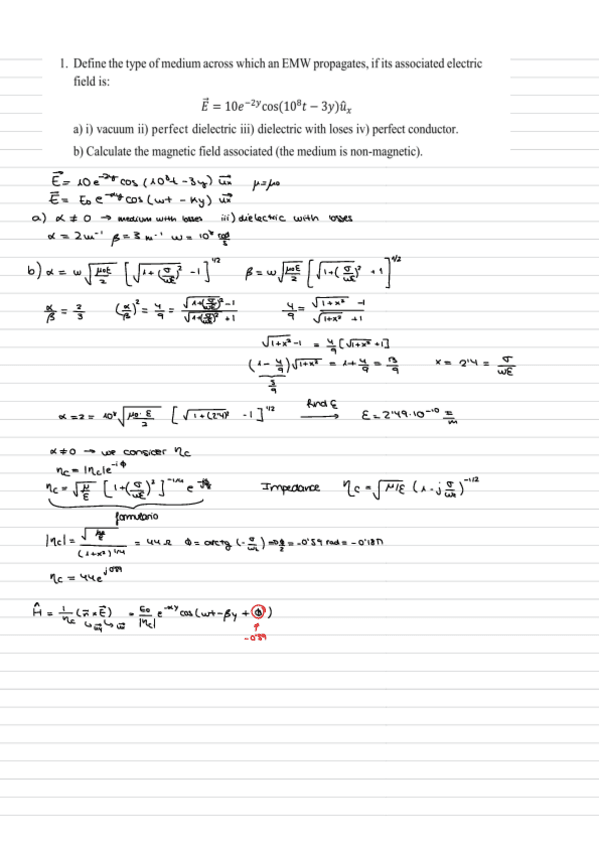 1. Define the type of medium across which an EMW propagates, if its associated electric
field is:
E⃗ = 10e^{-2y}cos(10^8t − 3y)û_x
a) i) vacuum ii) perfect dielectric iii) dielectric with loses iv) perfect conductor.
b) Calculate the magnetic field associated (the medium is non-magnetic).
E⃗ = 10 e^{-2y} cos (10^8t - 3y) u⃗x   μ=μ0
E⃗ = E0 e^{-αy} cos (wt - ky) u⃗x
a) α ≠ 0 → medium with losses   iii) dielectric with losses
α = 2 m^{-1}  β = 3 m^{-1}  w = 10^8 rad/s
b) α = w √(μ0ε/2) [√(1+(σ/wε)²) -1]^{1/2}   β = w √(μ0ε/2) [√(1+(σ/wε)²) +1]^{1/2}
α/β = 2/3   (α/β)² = 4/9 = (√(1+(σ/wε)²) -1)/(√(1+(σ/wε)²) +1)   4/9 = (√(1+x²) -1)/(√(1+x²) +1)
√(1+x²) -1 = 4/9 [√(1+x²) +1]
(1 - 4/9) √(1+x²) = 1+4/9 = 13/9   x = 2'4 = σ/wε
5/9
α = 2 = 10^8 √(μ0·ε/2) [√(1+(2'4)²) -1]^{1/2}   find ε →   ε = 2'49·10^{-10} F/m
α ≠ 0 → we consider ηc
ηc = |ηc| e^{-iϕ}
ηc = √(μ/ε) [1+(σ/wε)²]^{-1/4} e   Impedance   ηc = √(μ/ε) (1-j σ/wε)^{-1/2}
formulario
|ηc| = √(μ/ε)/(1+x²)^{1/4} = 44 Ω   ϕ = arctg (-σ/wε) ⇒ ϕ/2 = -0'59 rad = -0'187π
ηc = 44 e^{j0'59}
Ĥ = 1/ηc (n⃗ × E⃗) = E0/|ηc| e^{-αy} cos (wt - βy + ϕ)
-0'59